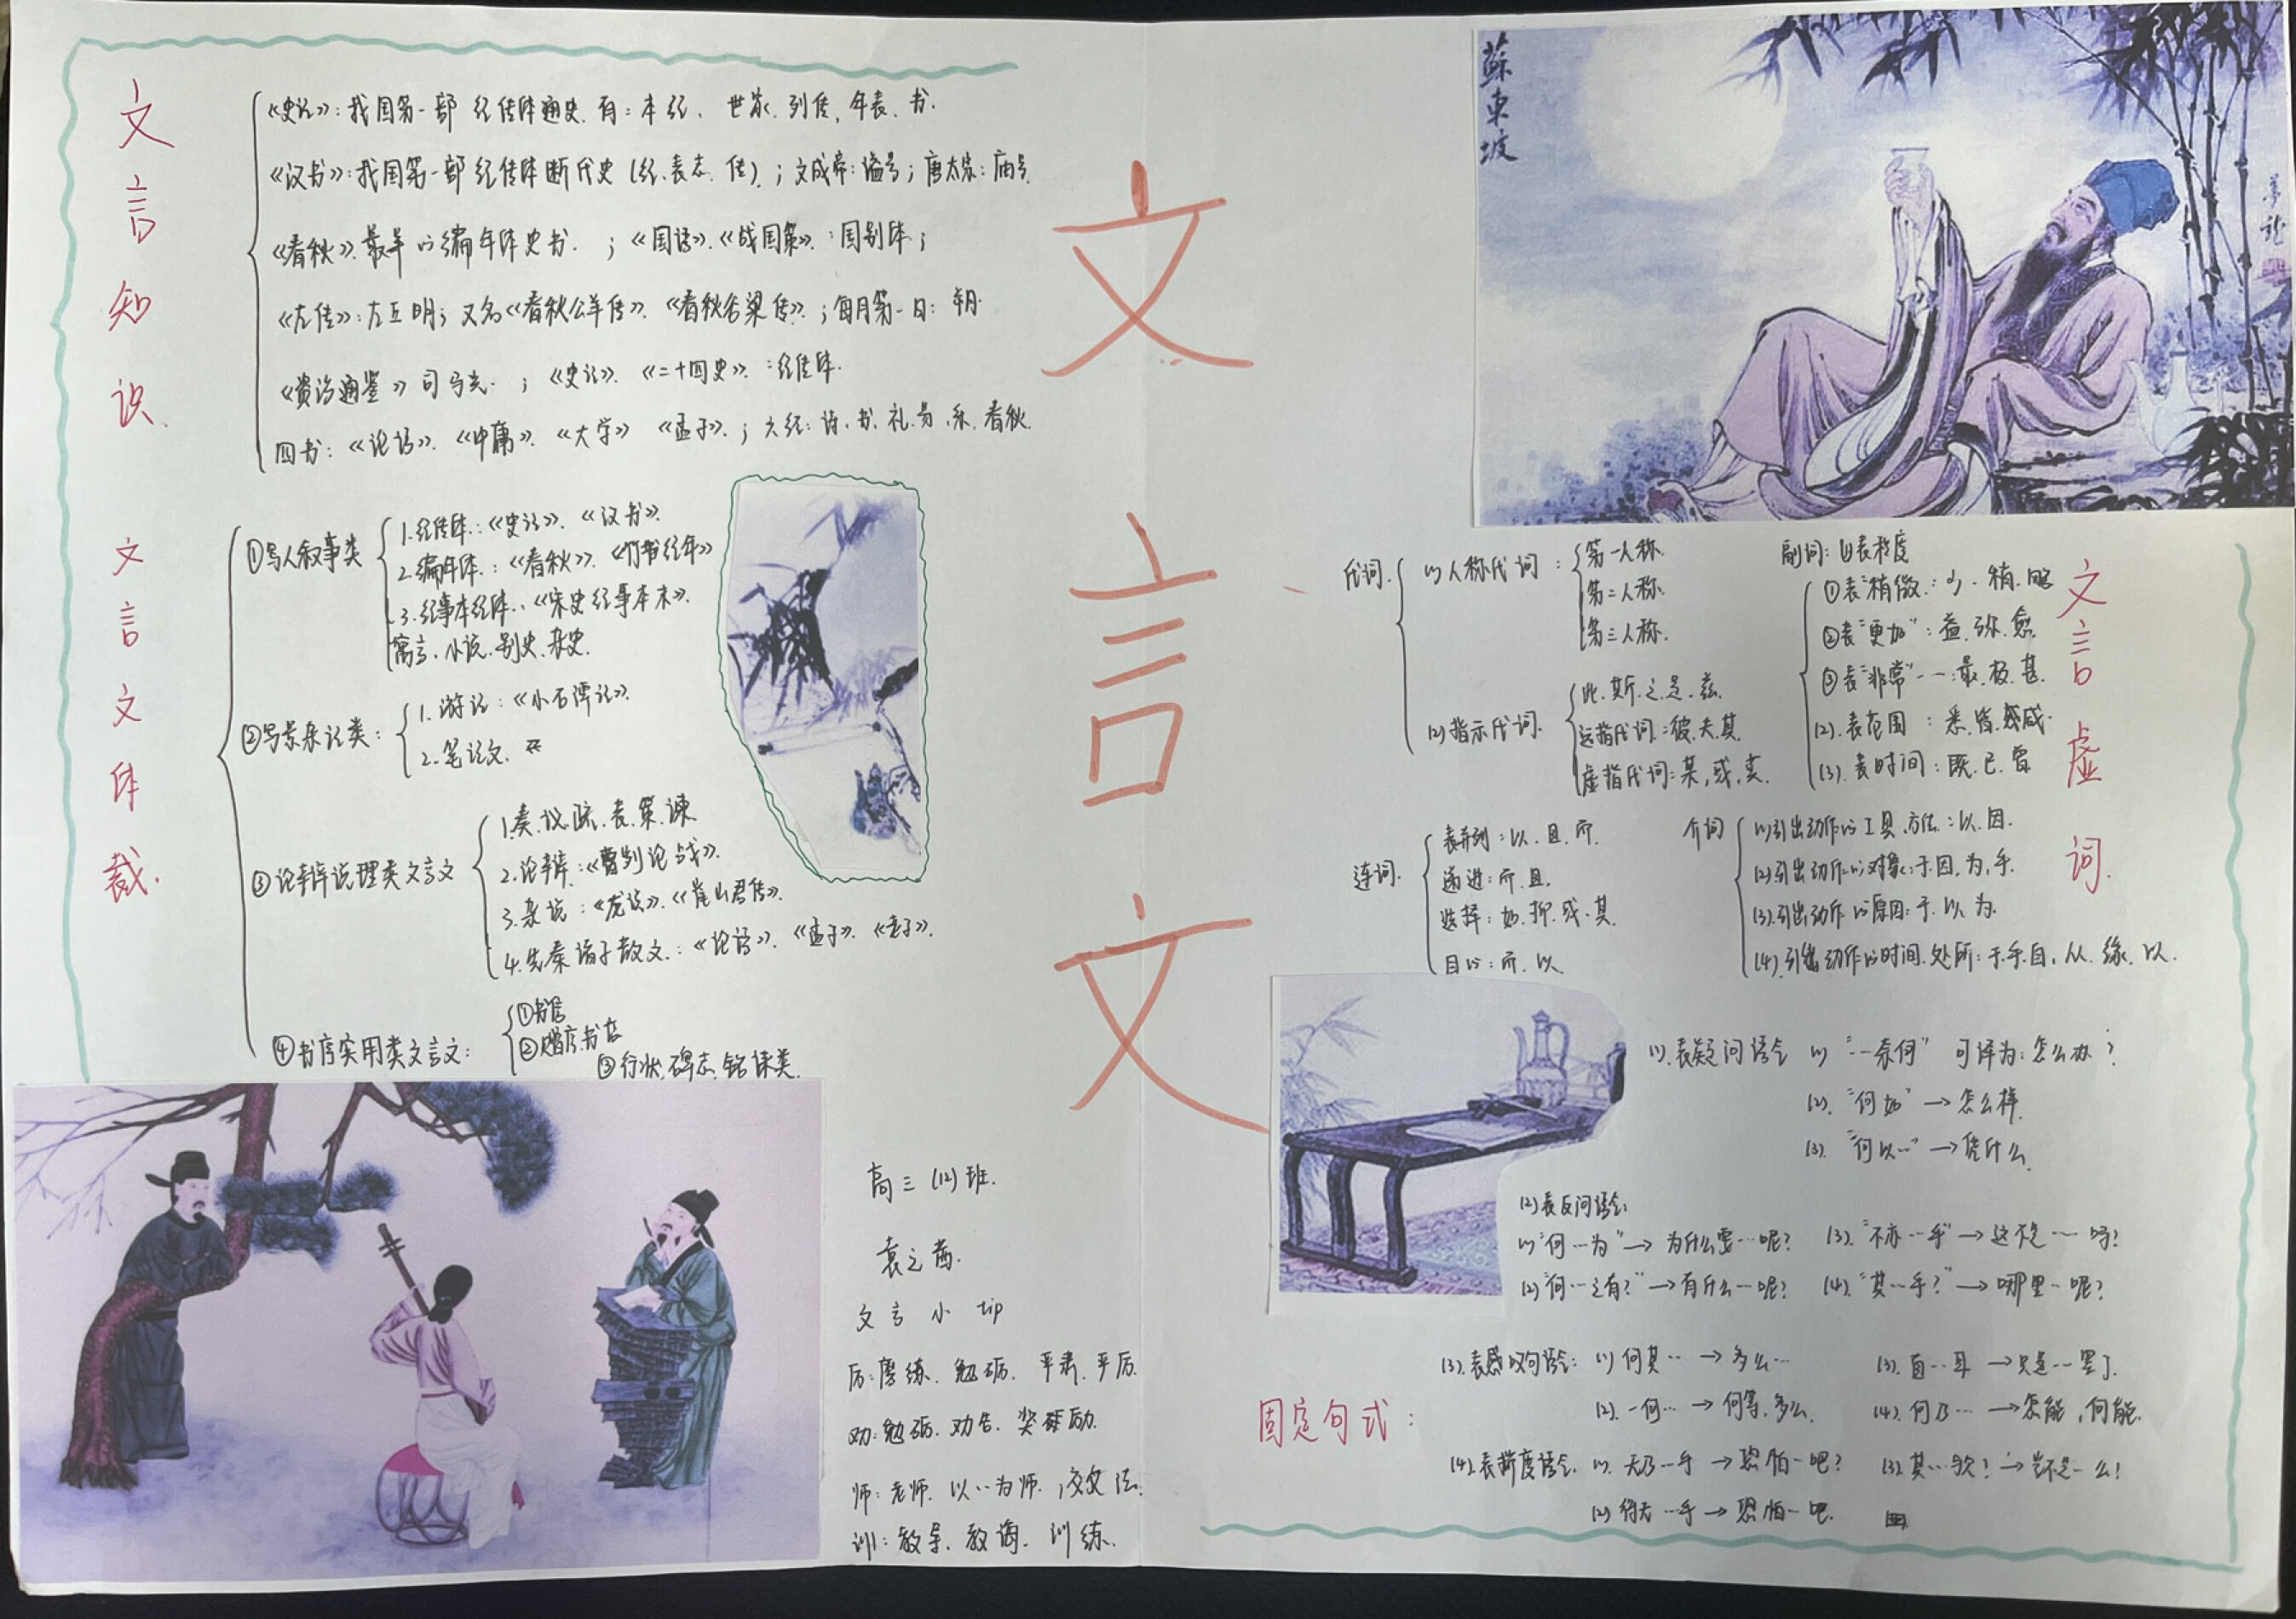 文言知识
《史记》:我国第一部纪传体通史.有:本纪、世家.列传,年表.书.
《汉书》:我国第一部纪传体断代史(纪.表志.传);文成帝:谥号;唐太宗:庙号.
《春秋》最早的编年体史书.;《国语》.《战国策》:国别体;
《左传》:左丘明;又名《春秋公羊传》.《春秋谷梁传》;每月第一日:朔
《资治通鉴》司马光.;《史记》.《二十四史》:纪传体.
四书:《论语》.《中庸》.《大学》《孟子》.;六经:诗.书.礼.易.乐.春秋.
文言文体裁.
①写人叙事类
1.纪传体.:《史记》.《汉书》.
2.编年体.:《春秋》.《竹书纪年》
3.纪事本纪体.:《宋史纪事本末》.
寓言.小说.别史.杂史.
②写景杂记类:
1.游记:《小石潭记》.
2.笔记文.
③论辩说理类文言文
1.奏.议.疏.表.策.谏.
2.论辩.:《曹刿论战》.
3.杂说:《龙说》.《崔山君传》.
4.先秦诸子散文.:《论语》.《孟子》.《老子》.
④书序实用类文言文:
①书信
②赠序书序
③行状.碑志.铭诔类.
文言文
高三(12)班.
袁之茜.
文言小tip
厉:磨练.勉砺.严肃.严厉.
劝:勉砺.劝告.奖励.
师:老师.以··为师.,效法.
训:教导.教诲.训练.
蘇東坡
文言虚词.
代词.
(1)人称代词:
第一人称.
第二人称.
第三人称.
(2)指示代词.
此.斯.之.是.兹.
远指代词:彼.夫.其.
虚指代词:某,或,莫.
副词:(1)表程度
①表“稍微:少.稍.略
②表“更加”:益.弥.愈.
③表“非常”··:最.极.甚.
(2).表范围:悉.皆.咸.
(3).表时间:既.已.尝.
连词.
表并列:以.且.而.
递进:而.且.
选择:如.抑.或.其.
目的:而.以.
介词
(1)引出动作的工具.方法.:以.因.
(2)引出动作的对象:于.因,为,乎.
(3).引出动作的原因:于.以.为.
(4).引出动作的时间.处所:于.乎.自,从.缘.以.
固定句式:
(1).表疑问语气(1)“··奈何”可译为:怎么办?
(2).“何如”→怎么样.
(3).“何以··”→凭什么.
(2)表反问语气:
(1)“何···为”→为什么要···呢?(3).“不亦···乎”→这不是···吗?
(2)“何···之有?”→有什么···呢?(4).“其···乎?”→哪里··呢?
(3).表感叹句语气:(1)何其··→多么··(3).直··耳→只是···罢了.
(2).一何··→何等.多么.(4).何乃···→怎能,何能.
(4).表揣度语气.(1).无乃··乎→恐怕··吧?(3).其···欤!→岂不是··么!
(2)得无···乎→恐怕··吧.